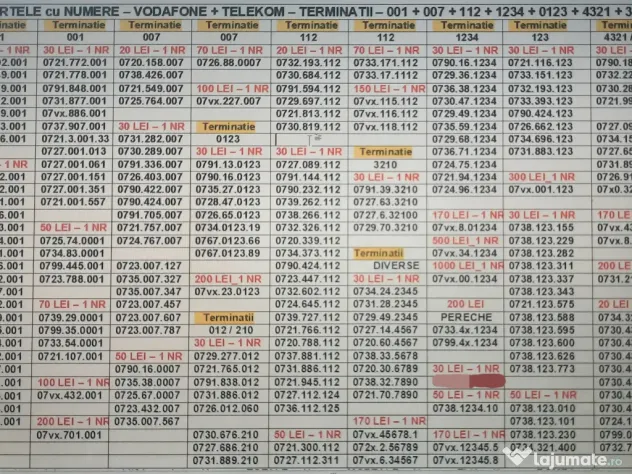 RTELE cu NUMERE – VODAFONE + TELEKOM – TERMINATII – 001 + 007 + 112 + 1234 + 0123 + 4321 + 3
Terminatie Terminatie Terminatie Terminatie Terminatie Terminatie Terminatie Terminatie
001 007 007 112 112 1234 123 4321
30 LEI – 1 NR 20 LEI – 1 NR 70 LEI – 1 NR 20 LEI – 1 NR 70 LEI – 1 NR 30 LEI – 1 NR 30 LEI – 1 NR 30 LEI
0721.772.001 0720.158.007 0726.88.0007 0732.193.112 0733.171.112 0790.16.1234 0721.116.123
0721.778.001 0738.426.007 0730.684.112 0733.17.1112 0729.36.1234 0733.151.123
0791.848.001 0721.549.007 100 LEI – 1 NR 0791.594.112 150 LEI – 1 NR 0736.38.1234 0732.193.123
0731.877.001 0725.764.007 07vx.227.007 0729.697.112 07vx.115.112 0730.47.1234 0733.393.123
07vx.886.001 0721.815.112 07vx.116.112 0729.49.1234 0790.424.123
0737.907.001 30 LEI – 1 NR Terminatie 0730.819.112 07vx.118.112 0735.59.1234 0726.662.123
0721.3.001.33 0731.282.007 0123 0729.68.1234 0734.696.123
0727.001.013 0730.289.007 30 LEI – 1 NR 30 LEI – 1 NR Terminatie 0736.71.1234 0731.883.123
0727.001.061 0791.336.007 0791.13.0123 0727.089.112 3210 0724.75.1234
0727.001.151 0726.403.007 0790.16.0123 0791.144.112 30 LEI – 1 NR 0721.94.1234 300 LEI_1 NR
0727.001.351 0790.422.007 0735.27.0123 0790.232.112 0791.39.3210 0724.96.1234 07vx.001.123
0721.001.557 0790.424.007 0728.47.0123 0739.262.112 0727.63.3210
0791.705.007 0726.65.0123 0738.266.112 0727.6.32100 170 LEI – 1 NR 30 LEI – 1 NR 170 LEI
50 LEI – 1 NR 0721.757.007 0734.0123.19 0732.326.112 0729.70.3210 07vx.8.01234 0738.123.155
0725.74.0001 0724.767.007 0767.0123.66 0720.339.112 500 LEI_1 NR 0738.123.229
0734.83.0001 0767.0123.89 0734.373.112 Terminatii 07vx.34.1234 0738.123.282
0799.445.001 0723.007.127 0790.424.112 DIVERSE 1000 LEI_1 NR 0738.123.311 200 LEI
0723.788.001 0735.007.327 200 LEI_1 NR 0723.447.112 30 LEI – 1 NR 07vx.00.1234 0738.123.337
0735.007.347 07vx.23.0123 0732.602.112 0734.24.2345 0738.123.343
70 LEI – 1 NR 0723.007.457 0724.645.112 0731.28.2345 200 LEI 0721.123.575 20 LEI
0739.29.0001 0723.007.607 Terminatii 0739.727.112 0729.49.2345 PERECHE 0738.123.588
0799.35.0001 0723.007.787 012 / 210 0721.766.112 0727.14.4567 0733.4x.1234 0738.123.595
0733.54.0001 30 LEI – 1 NR 0720.788.112 0720.60.4567 0799.4x.1234 0738.123.600
0721.107.001 50 LEI – 1 NR 0729.277.012 0737.881.112 0738.33.5678 0738.123.626
0790.16.0007 0721.765.012 0731.886.112 0720.30.6789 30 LEI – 1 NR 0738.123.773
100 LEI – 1 NR 0735.38.0007 0791.838.012 0721.945.112 0738.32.7890
07vx.432.001 0725.67.0007 0731.886.012 0727.124.112 0721.70.7890 50 LEI – 1 NR 50 LEI – 1 NR
0723.432.007 0726.012.060 0736.112.125 0738.1234.10 0738.123.010
200 LEI – 1 NR 0735.007.567 170 LEI – 1 NR 0738.123.101
07vx.701.001 0730.676.210 50 LEI – 1 NR 07vx.45678.1 170 LEI – 1 NR 0738.123.230
0727.686.210 0721.300.112 072x.2.56789 07vx.12345.0 0731.321.400
0731.889.210 0727.112.311 07vx.6.34567 07vx.12345.8
Lajumate.ro